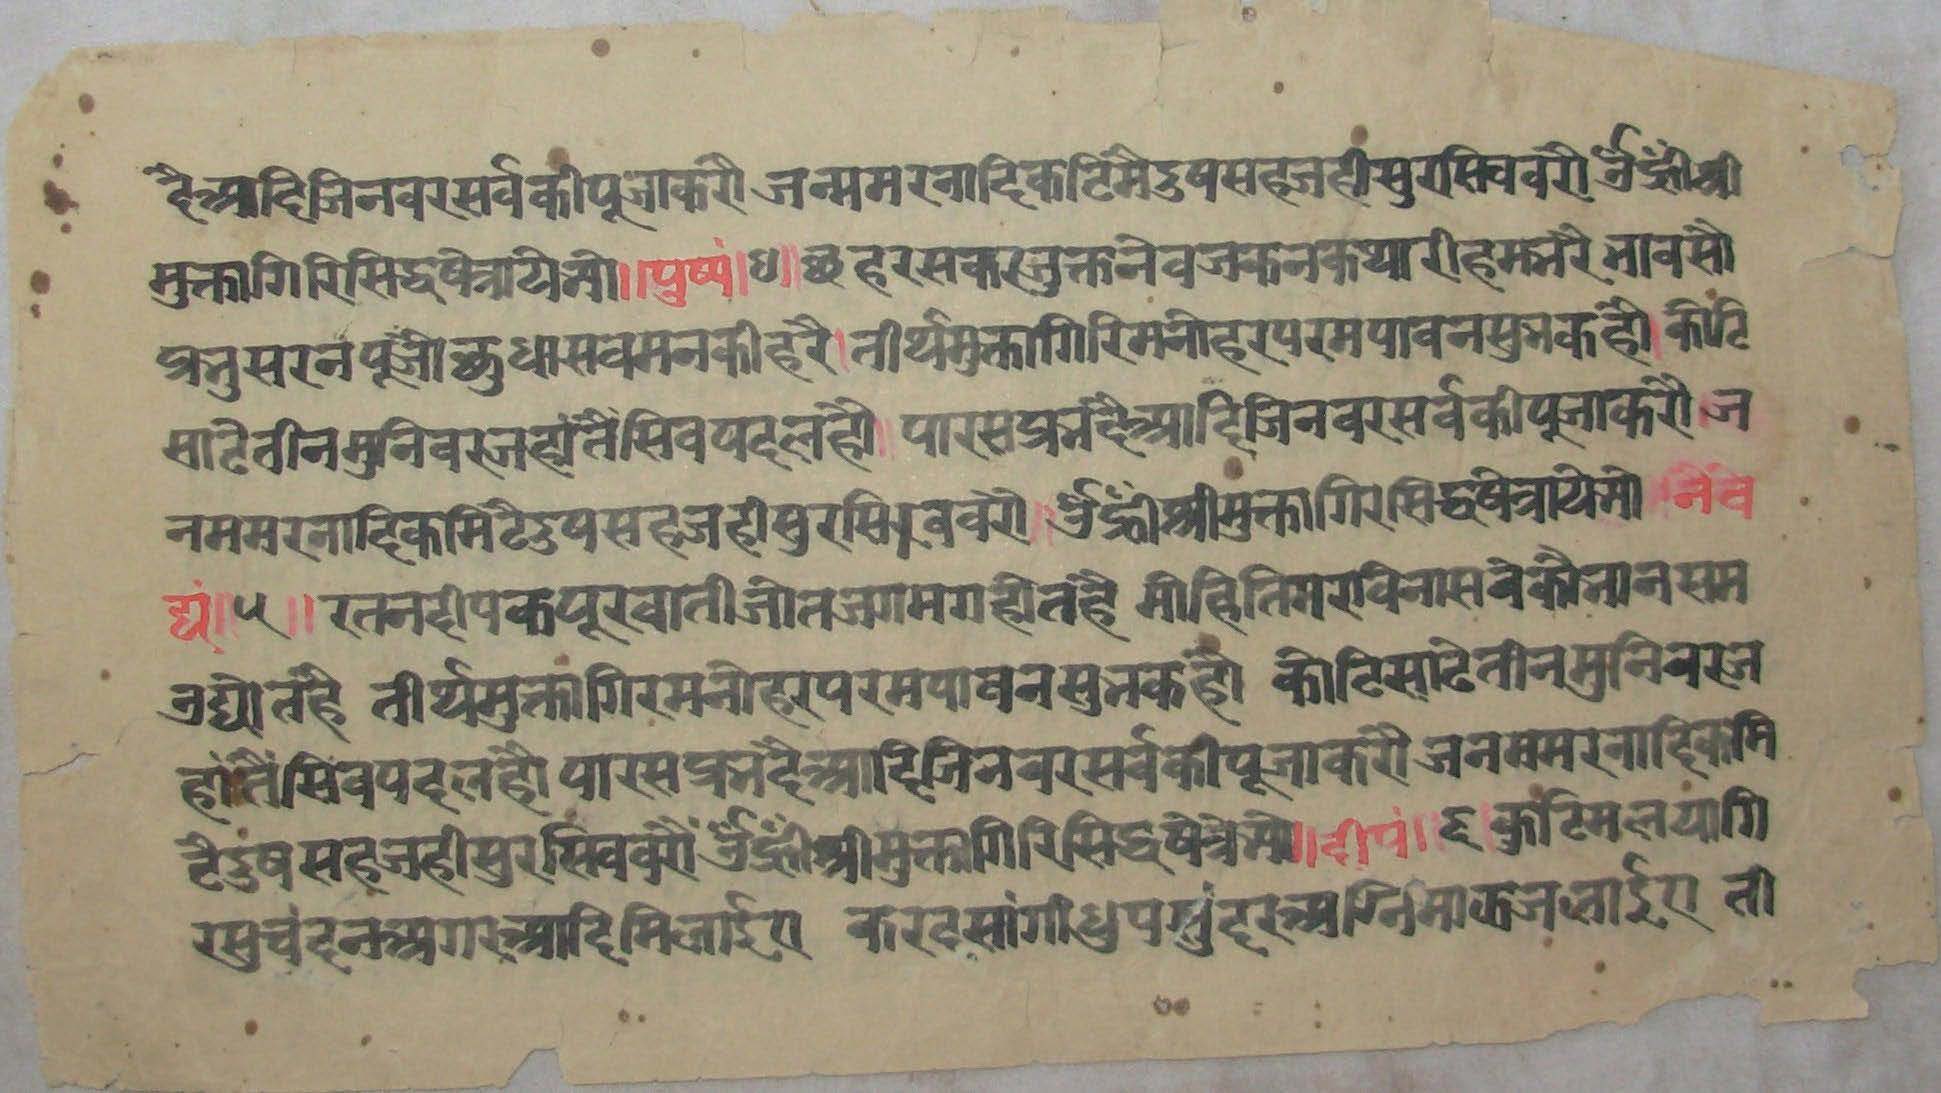 है आदि जिनवर सर्व की पूजा करौ जन्म मरनादिक टिंमै दुष सहज ही सुरसिव वरौ ॐ ह्रीं श्री
मुक्तागिरि सिद्धषेत्रायेमो ॥ पुष्पं ॥ ४ ॥ छहरस कर जुक्त नेवज कनक थारी हम भरै भाव सौ
प्रभु सरन पूजौ छुधा सव मन की हरै । तीर्थ मुक्तागिरि मनोहर परम पावन सुभ कहौ । कोटि
साटे तीन मुनिवर जहां तै सिव पद लहौ ॥ पारस प्रभ है आदि जिनवर सर्व की पूजा करौ । ज
नम मरनादिक मिटै दुष सहज ही सुर सिव वरौ ॥ ॐ ह्रीं श्री मुक्तागिर सिद्धषेत्रायेमो ॥ नैवे
द्यं ॥ ५ ॥ रतन दीप कपूर वाती जोत जगमग होत है मोह तिमर विनासवे कौ भान सम
उद्योत है तीर्थ मुक्तागिर मनोहर परम पावन सुभ कहौ कोटि साटे तीन मुनिवर ज
हां तै सिव पद लहौ पारस प्रभ है आदि जिनवर सर्व की पूजा करौ जनम मरनादिक मि
टै दुष सहज ही सुर सिव वरौ ॐ ह्रीं श्री मुक्तागिरि सिद्धषेत्रेमो ॥ दीपं ॥ ६ ॥ कुटि मलयागि
र सु चंदन अगर आदि मिलाईए कर दसांगी धुप सुंदर अग्नि माझ जलाईए ती